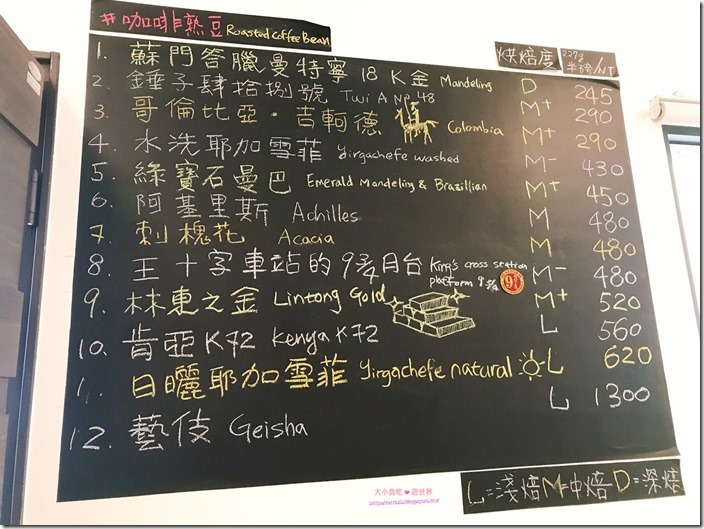 #咖啡熟豆 Roasted Coffee Bean 烘焙度 227g 半磅/NT
1. 蘇門答臘曼特寧 18 K金 Mandeling D 245
2. 錘子肆拾捌號 Twi A No 48 M+ 290
3. 哥倫比亞·吉軻德 Colombia M+ 290
4. 水洗耶加雪菲 Yirgachefe washed M- 430
5. 綠寶石曼巴 Emerald Mandeling & Brazillian M+ 450
6. 阿基里斯 Achilles M 480
7. 刺槐花 Acacia M 480
8. 王十字車站的9¾月台 King's cross station platform 9¾ M- 480
9. 林東之金 Lintong Gold M+ 520
10. 肯亞K72 Kenya K72 L 560
1. 日曬耶加雪菲 Yirgachefe natural L 620
12. 藝伎 Geisha L 1300
L=淺焙 M=中焙 D=深焙
大小貪吃❤遊世界